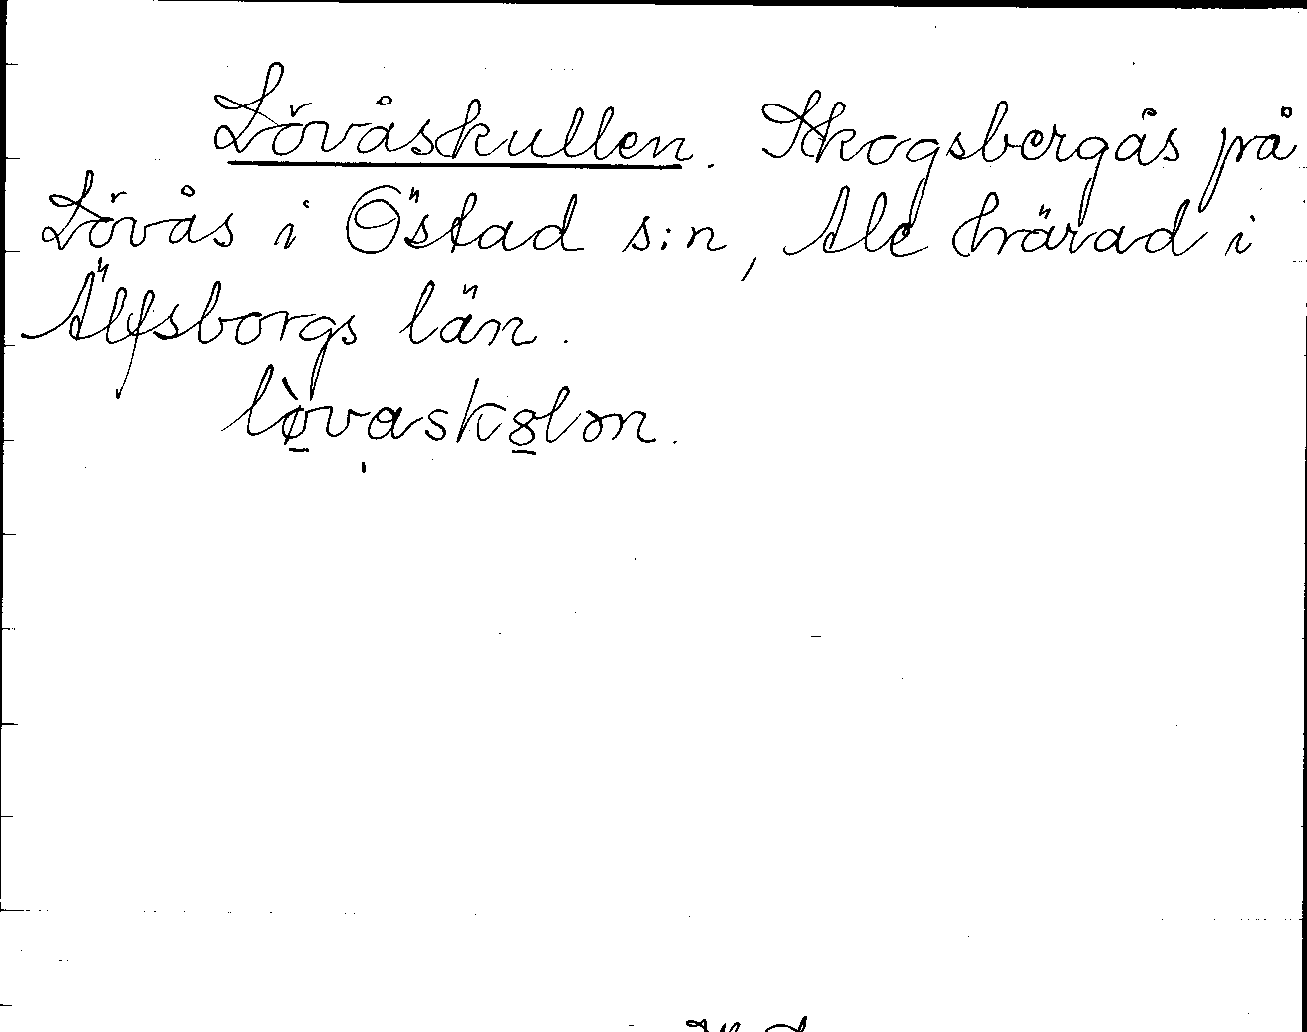 Lövåskullen. Skogsbergås på
Lövås i Östad s:n, Ale härad i
Älfsborgs län.
lø̀vaskɵlən.